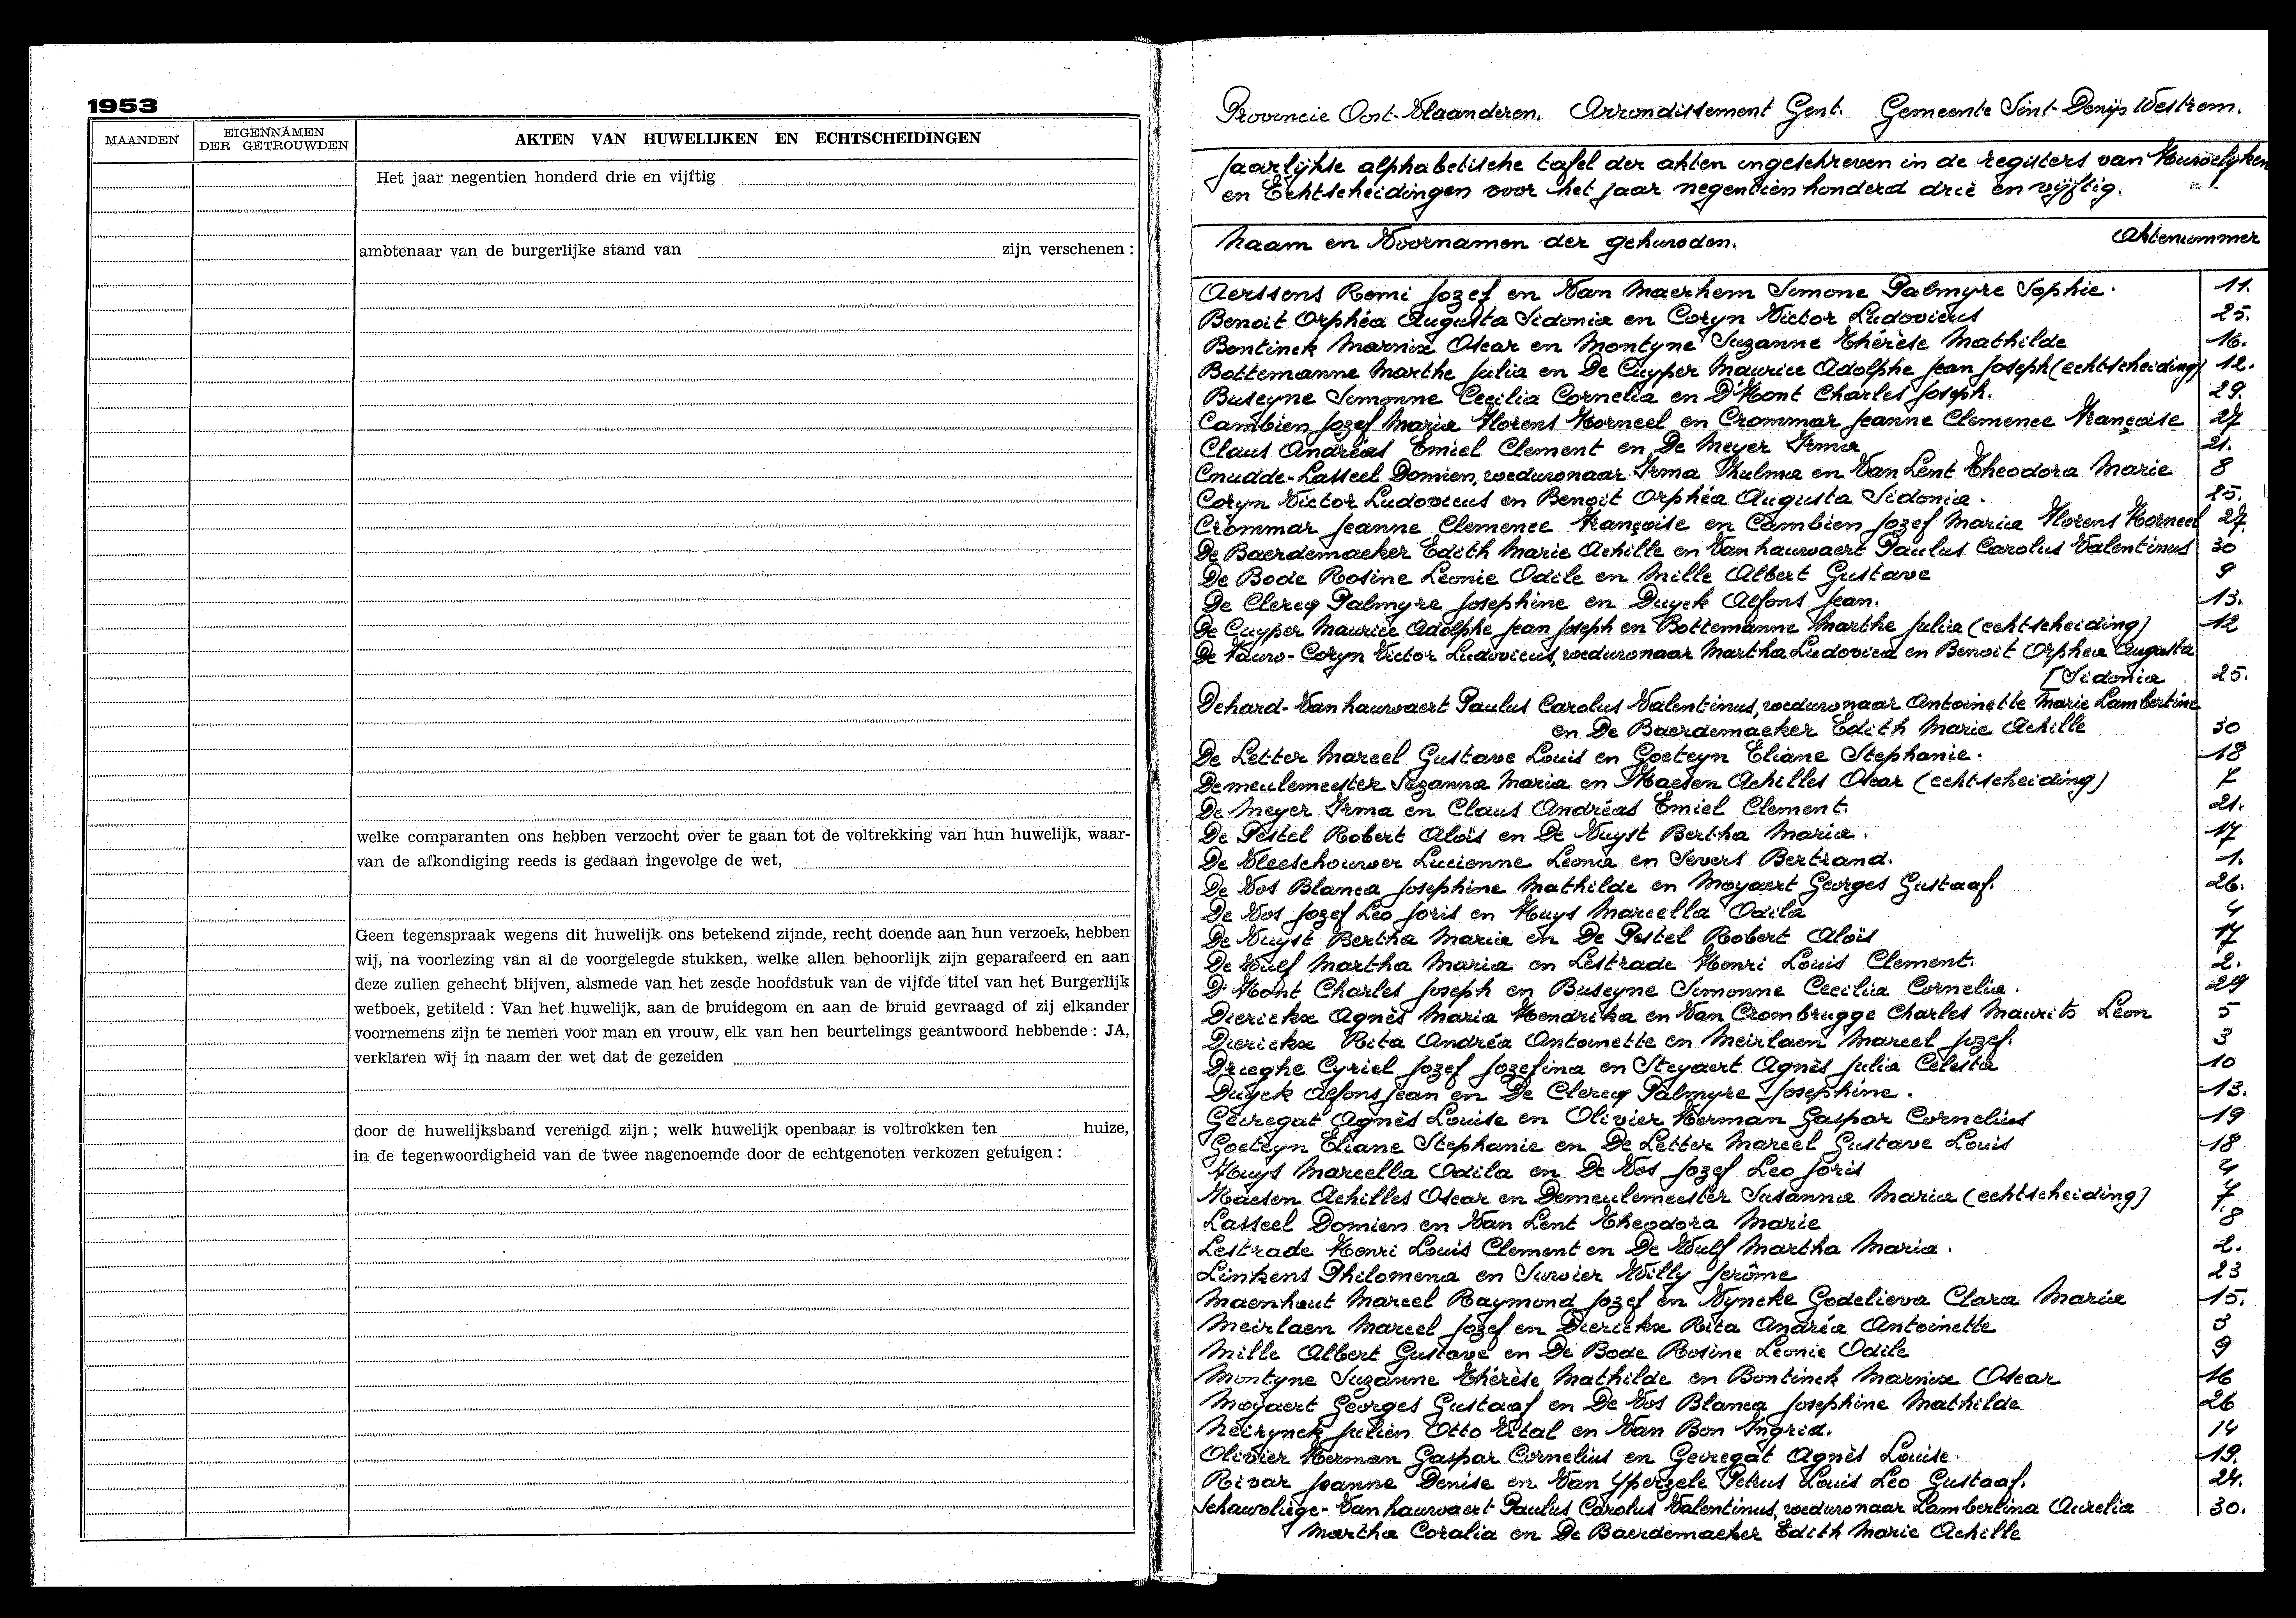 1953
MAANDEN
EIGENNAMEN
DER GETROUWDEN
AKTEN VAN HUWELIJKEN EN ECHTSCHEIDINGEN
Het jaar negentien honderd drie en vijftig
ambtenaar van de burgerlijke stand van zijn verschenen :
welke comparanten ons hebben verzocht over te gaan tot de voltrekking van hun huwelijk, waar-
van de afkondiging reeds is gedaan ingevolge de wet,
Geen tegenspraak wegens dit huwelijk ons betekend zijnde, recht doende aan hun verzoek, hebben
wij, na voorlezing van al de voorgelegde stukken, welke allen behoorlijk zijn geparafeerd en aan
deze zullen gehecht blijven, alsmede van het zesde hoofdstuk van de vijfde titel van het Burgerlijk
wetboek, getiteld : Van het huwelijk, aan de bruidegom en aan de bruid gevraagd of zij elkander
voornemens zijn te nemen voor man en vrouw, elk van hen beurtelings geantwoord hebbende : JA,
verklaren wij in naam der wet dat de gezeiden
door de huwelijksband verenigd zijn ; welk huwelijk openbaar is voltrokken ten huize,
in de tegenwoordigheid van de twee nagenoemde door de echtgenoten verkozen getuigen :
Provincie Oost-Vlaanderen. Arrondissement Gent. Gemeente Sint-Denijs Westrem.
Jaarlijkse alphabetische tafel der akten ingeschreven in de registers van Huwelijken
en Echtscheidingen voor het jaar negentien honderd drie en vijftig.
Naam en Voornamen der gehuwden. Aktenummer
Aerssens Remi Jozef en Van Maerhem Simone Palmyre Sophie. 11.
Benoit Orphéa Augusta Sidonia en Coryn Victor Ludovicus 25.
Bontinck Marnix Oscar en Montyne Suzanne Thérèse Mathilde 16.
Bottemanne Marthe Julia en De Cuyper Maurice Adolphe Jean Joseph (echtscheiding) 12.
Buseyne Simonne Cecilia Cornelia en D'Hont Charles Joseph. 29.
Cambien Jozef Maria Florens Korneel en Crommar Jeanne Clemence Françoise 27
Claus Andréas Emiel Clement en De Meyer Irma 21.
Cnudde-Lasseel Domien, weduwnaar Irma Thulma en Van Lent Theodora Marie 8
Coryn Victor Ludovicus en Benoit Orphéa Augusta Sidonia. 25.
Crommar Jeanne Clemence Françoise en Cambien Jozef Maria Florens Korneel 27.
De Baerdemaeker Edith Marie Achille en Vanhauwaert Paulus Carolus Valentinus 30
De Bode Rosine Leonie Odile en Mille Albert Gustave 9
De Clercq Palmyre Josephine en Duyck Alfons Jean. 13.
De Cuyper Maurice Adolphe Jean Joseph en Bottemanne Marthe Julia (echtscheiding) 12
De Fauw-Coryn Victor Ludovicus, weduwnaar Martha Ludovica en Benoit Orphea Augusta
[Sidonia 25.
Dehard-Vanhauwaert Paulus Carolus Valentinus, weduwnaar Antoinette Marie Lambertine
en De Baerdemaeker Edith Marie Achille 30
De Letter Marcel Gustave Louis en Goeteyn Eliane Stephanie. 18
Demeulemeester Suzanna Maria en Maesen Achilles Oscar (echtscheiding) 7
De Meyer Irma en Claus Andréas Emiel Clement. 21.
De Pestel Robert Aloïs en De Vuyst Bertha Maria. 17
De Vleeschouwer Lucienne Leonia en Severs Bertrand. 1.
De Vos Blanca Josephine Mathilde en Moyaert Georges Gustaaf. 26.
De Vos Jozef Leo Joris en Huys Marcella Odila 4
De Vuyst Bertha Maria en De Pestel Robert Aloïs 17
De Wulf Martha Maria en Lestrade Henri Louis Clement. 2.
D'Hont Charles Joseph en Buseyne Simonne Cecilia Cornelia. 29
Dierickx Agnès Maria Hendrika en Van Crombrugge Charles Maurits Leon 5
Dierickx Rita Andréa Antoinette en Meirlaen Marcel Jozef. 3
Drieghe Cyriel Jozef Jozefina en Steyaert Agnès Julia Celesta 10
Duyck Alfons Jean en De Clercq Palmyre Josephine. 13.
Gevregat Agnès Louise en Olivier Herman Gaspar Cornelius 19
Goeteyn Eliane Stephanie en De Letter Marcel Gustave Louis 18
Huys Marcella Odila en De Vos Jozef Leo Joris 4
Maesen Achilles Oscar en Demeulemeester Susanna Maria (echtscheiding) 7.
Lasseel Domien en Van Lent Theodora Marie 8
Lestrade Henri Louis Clement en De Wulf Martha Maria. 2.
Linkens Philomena en Suwier Willy Jerôme 23
Maenhout Marcel Raymond Jozef en Vyncke Godelieva Clara Maria 15.
Meirlaen Marcel Jozef en Dierickx Rita Andréa Antoinette 3
Mille Albert Gustave en De Bode Rosine Léonie Odile 9
Montyne Suzanne Thérèse Mathilde en Bontinck Marnix Oscar 16
Moyaert Georges Gustaaf en De Vos Blanca Josephine Mathilde 26
Neirynck Julien Otto Vital en Van Bon Ingrid. 14
Olivier Herman Gaspar Cornelius en Gevregat Agnès Louise. 19.
Rivar Jeanne Denise en Van Yperzele Petrus Louis Leo Gustaaf. 24.
Schauvliege-Vanhauwaert Paulus Carolus Valentinus, weduwnaar Lambertina Aurelia 30.
Martha Coralia en De Baerdemaeker Edith Marie Achille